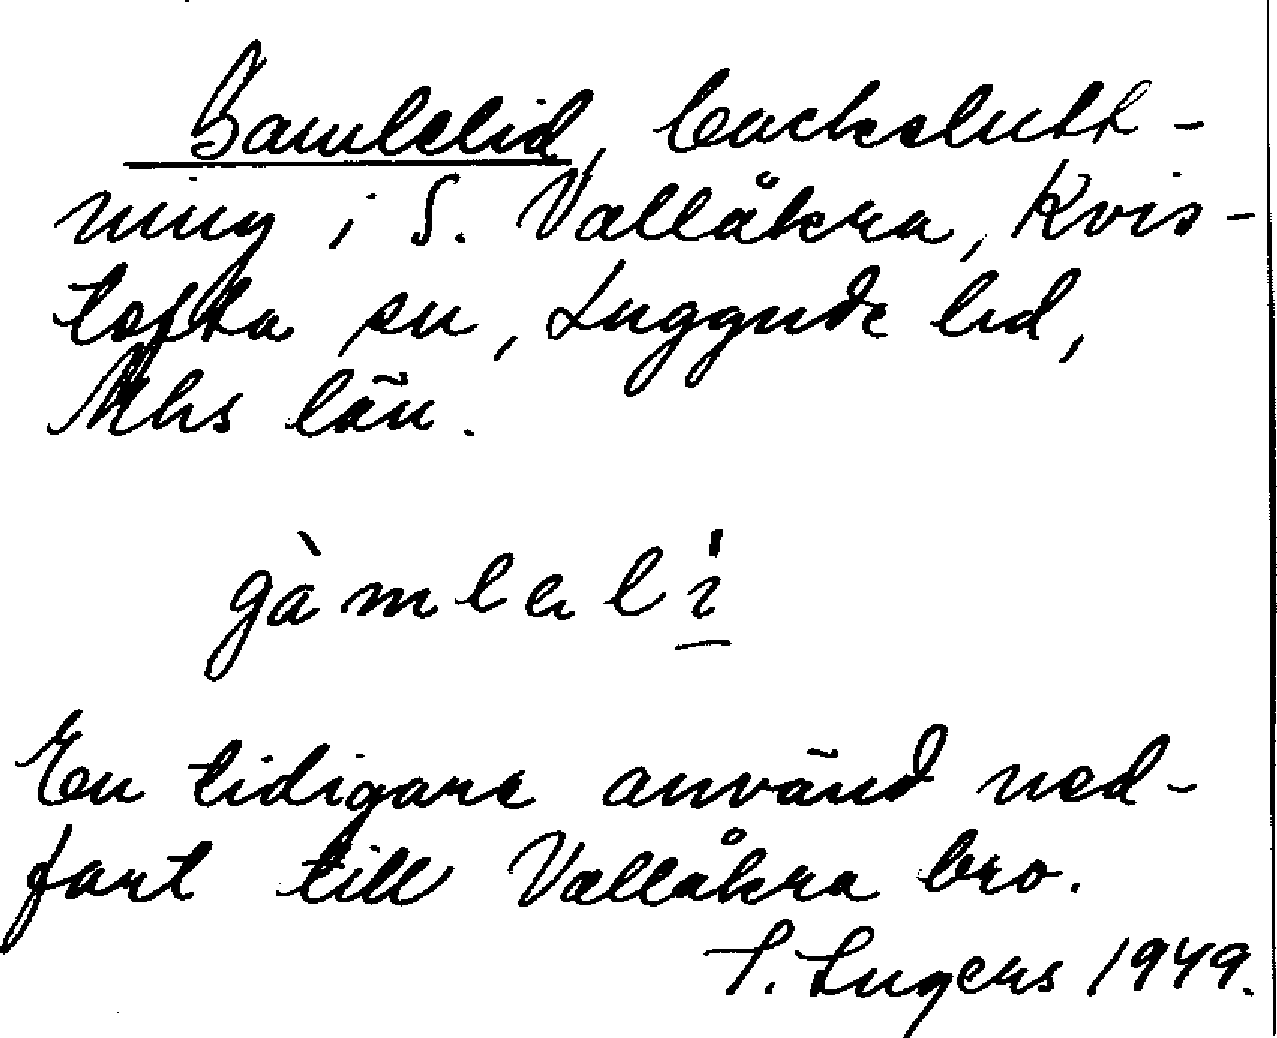 Gamlelid, backslutt-
ning i S. Vallåkra, Kvis-
tofta sn, Luggude hd,
Mhs län.
gàmlelí
En tidigare använd ned-
fart till Vallåkra bro.
1949.